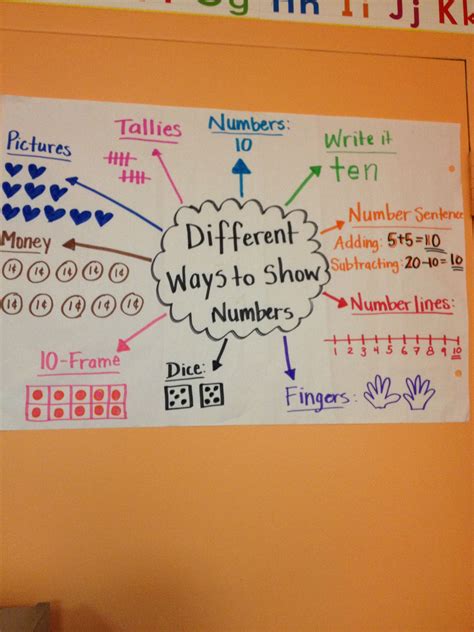 Gg Hh Ii Jj Kk
Pictures
Tallies
Numbers:
10
Write it
ten
Different
Ways to Show
Numbers
Money
1¢ 1¢ 1¢ 1¢ 1¢
1¢ 1¢ 1¢ 1¢ 1¢
Number Sentence
Adding: 5+5=10
Subtracting: 20-10=10
Numberlines:
1 2 3 4 5 6 7 8 9 10
10-Frame
Dice:
Fingers: